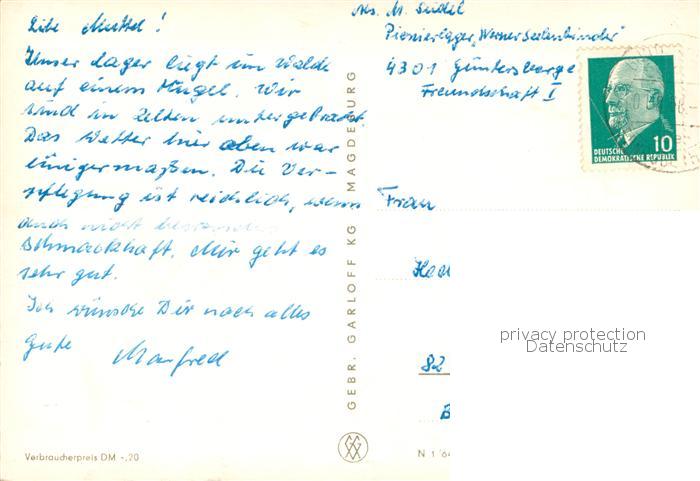 Liebe Muttel!
Unser Lager liegt im Walde
auf einem Hügel. Wir
sind in Zelten untergebracht.
Das Wetter hier oben war
einigermaßen. Die Ver-
pflegung ist reichlich, wenn
auch nicht besonders
schmackhaft. Mir geht es
sehr gut.
Ich wünsche Dir noch alles
Gute Manfred
Verbraucherpreis DM -,20
GEBR. GARLOFF KG MAGDEBURG
Abs. M. Seidel
Pionierlager "Werner Seelenbinder"
4301 Güntersberge
Freundschaft I
DEUTSCHE
DEMOKRATISCHE REPUBLIK 10
Frau
82
N 1 64
privacy protection
Datenschutz